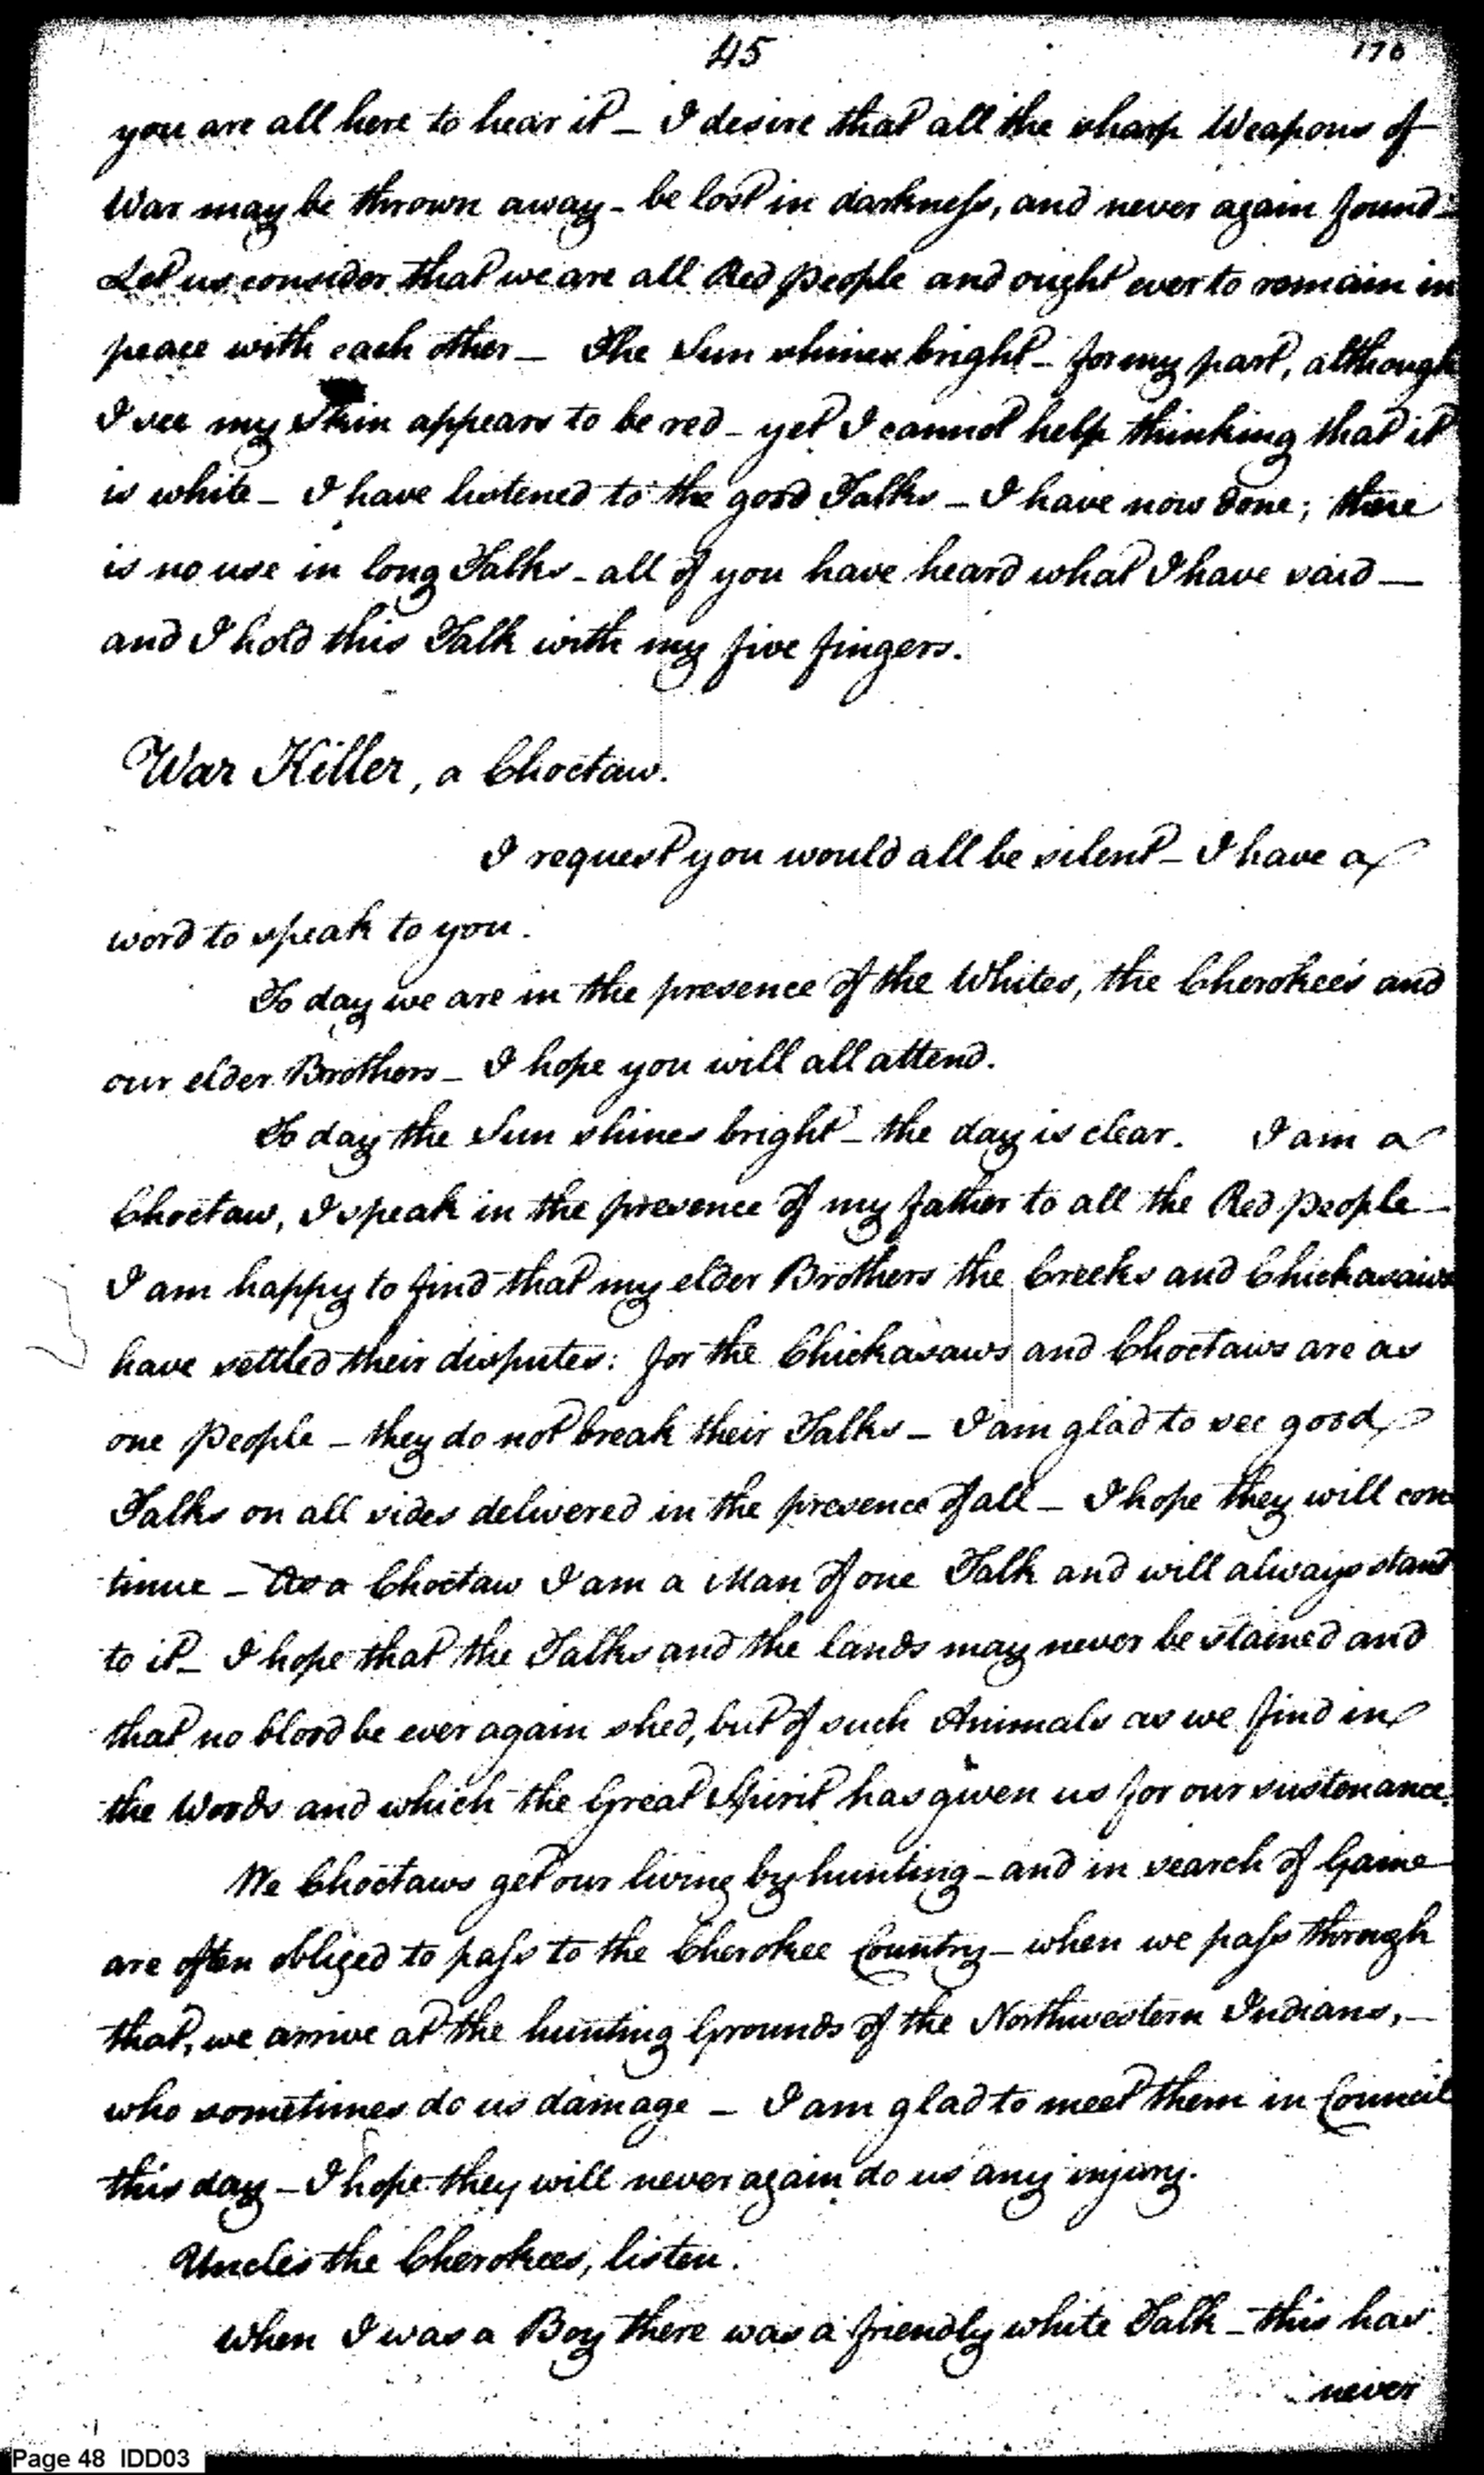 45
176
you are all here to hear it – I desire that all the sharp Weapons of
War may be thrown away – be lost in darkness, and never again found –
Let us consider that we are all Red People and ought ever to remain in
peace with each other – The Sun shines bright – for my part, although
I see my Skin appears to be red – yet I cannot help thinking that it
is white – I have listened to the good Talks – I have now done; there
is no use in long Talks – all of you have heard what I have said —
and I hold this Talk with my five fingers.
War Killer, a Choctaw.
I request you would all be silent – I have a
word to speak to you.
To day we are in the presence of the Whites, the Cherokees and
our elder Brothers – I hope you will all attend.
To day the Sun shines bright – the day is clear. I am a
Choctaw, I speak in the presence of my father to all the Red People –
I am happy to find that my elder Brothers the Creeks and Chickasaws
have settled their disputes: for the Chickasaws and Choctaws are as
one People – they do not break their Talks – I am glad to see good
Talks on all sides delivered in the presence of all – I hope they will con
tinue – As a Choctaw I am a Man of one Talk and will always stand
to it – I hope that the Talks and the lands may never be stained and
that no blood be ever again shed, but of such Animals as we find in
the Woods and which the Great Spirit has given us for our sustenance.
We Choctaws get our living by hunting – and in search of Game
are often obliged to pass to the Cherokee Country – when we pass through
that, we arrive at the hunting Grounds of the Northwestern Indians, –
who sometimes do us damage – I am glad to meet them in Council
this day – I hope they will never again do us any injury.
Uncles the Cherokees, listen.
When I was a Boy there was a friendly white Talk – this has
never
Page 48 IDD03